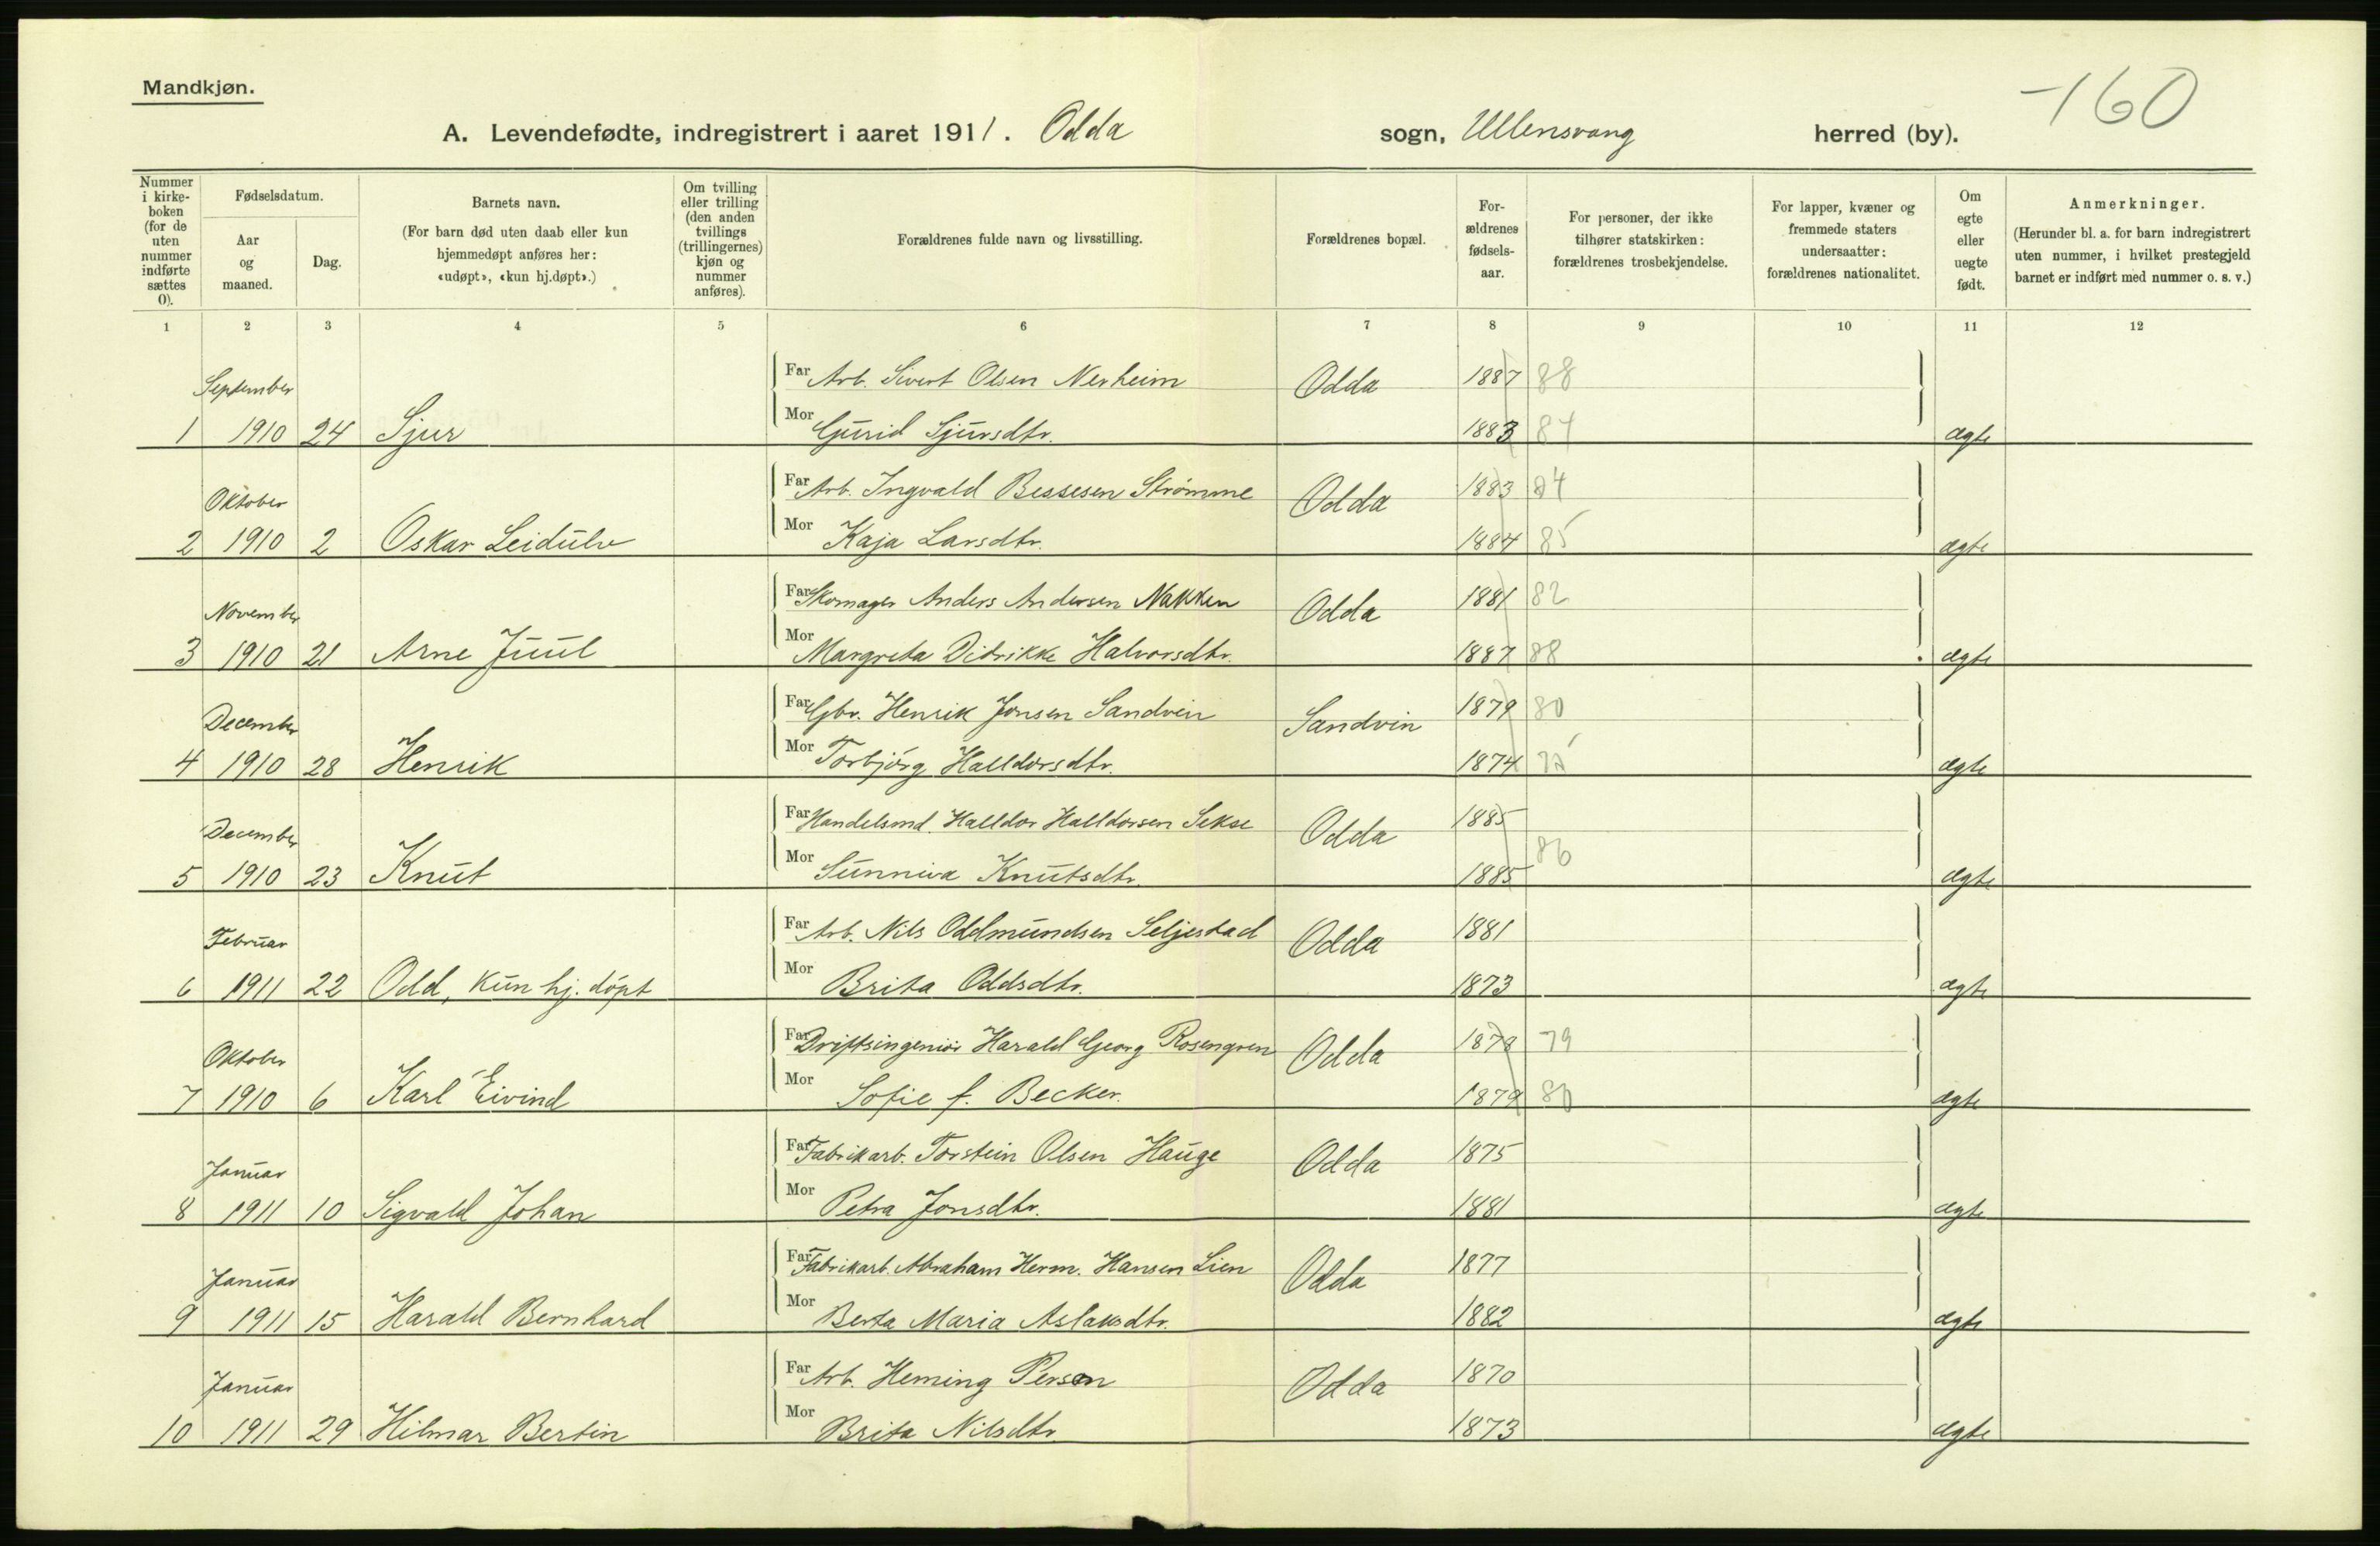 Mandkjøn.
-160
A. Levendefødte, indregistrert i aaret 1911. Odda sogn, Ullensvang herred (by).
Nummer i kirke-boken (for de uten nummer indførte sættes 0).
Fødselsdatum.
Aar og maaned.
Dag.
Barnets navn.
(For barn død uten daab eller kun hjemmedøpt anføres her: «udøpt», «kun hj.døpt».)
Om tvilling eller trilling (den anden tvillings (trillingernes) kjøn og nummer anføres).
Forældrenes fulde navn og livsstilling.
Forældrenes bopæl.
For-ældrenes fødsels-aar.
For personer, der ikke tilhører statskirken: forældrenes trosbekjendelse.
For lapper, kvæner og fremmede staters undersaatter: forældrenes nationalitet.
Om egte eller uegte født.
Anmerkninger.
(Herunder bl. a. for barn indregistrert uten nummer, i hvilket prestegjeld barnet er indført med nummer o. s. v.)
1 2 3 4 5 6 7 8 9 10 11 12
September Far Arb. Sivert Olsen Nerheim Odda 1887 88
1 1910 24 Sjur Mor Gurid Sjursdtr. 1883 84 ægte
Oktober Far Arb. Ingvald Bessesen Strömme Odda 1883 84
2 1910 2 Oskar Leidulv Mor Kaja Larsdtr. 1884 85 ægte
November Far Skomager Anders Andersen Nakken Odda 1881 82
3 1910 21 Arne Juul Mor Margreta Didrikke Halvorsdtr. 1887 88 ægte
December Far Gbr. Henrik Jonsen Sandvin Sandvin 1879 80
4 1910 28 Henrik Mor Torbjörg Halldorsdtr. 1874 75 ægte
December Far Handelsmd. Halldor Halldorsen Sekse Odda 1885
5 1910 23 Knut Mor Sunniva Knutsdtr. 1885 86 ægte
Februar Far Arb. Nils Oddmundsen Seljestad Odda 1881
6 1911 22 Odd, kun hj. döpt Mor Brita Oddsdtr. 1873 ægte
Oktober Far Driftsingeniör Harald Georg Rosengren Odda 1878 79
7 1910 6 Karl Eivind Mor Sofie f. Becker. 1879 80 ægte
Januar Far Fabrikarb. Torstein Olsen Hauge Odda 1875
8 1911 10 Sigvald Johan Mor Petra Jonsdtr. 1881 ægte
Januar Far Fabrikarb. Abraham Herm. Hansen Lien Odda 1877
9 1911 15 Harald Bernhard Mor Berta Maria Aslaksdtr. 1882 ægte
Januar Far Arb. Heming Person Odda 1870
10 1911 29 Hilmar Bertin Mor Brita Nilsdtr. 1873 ægte